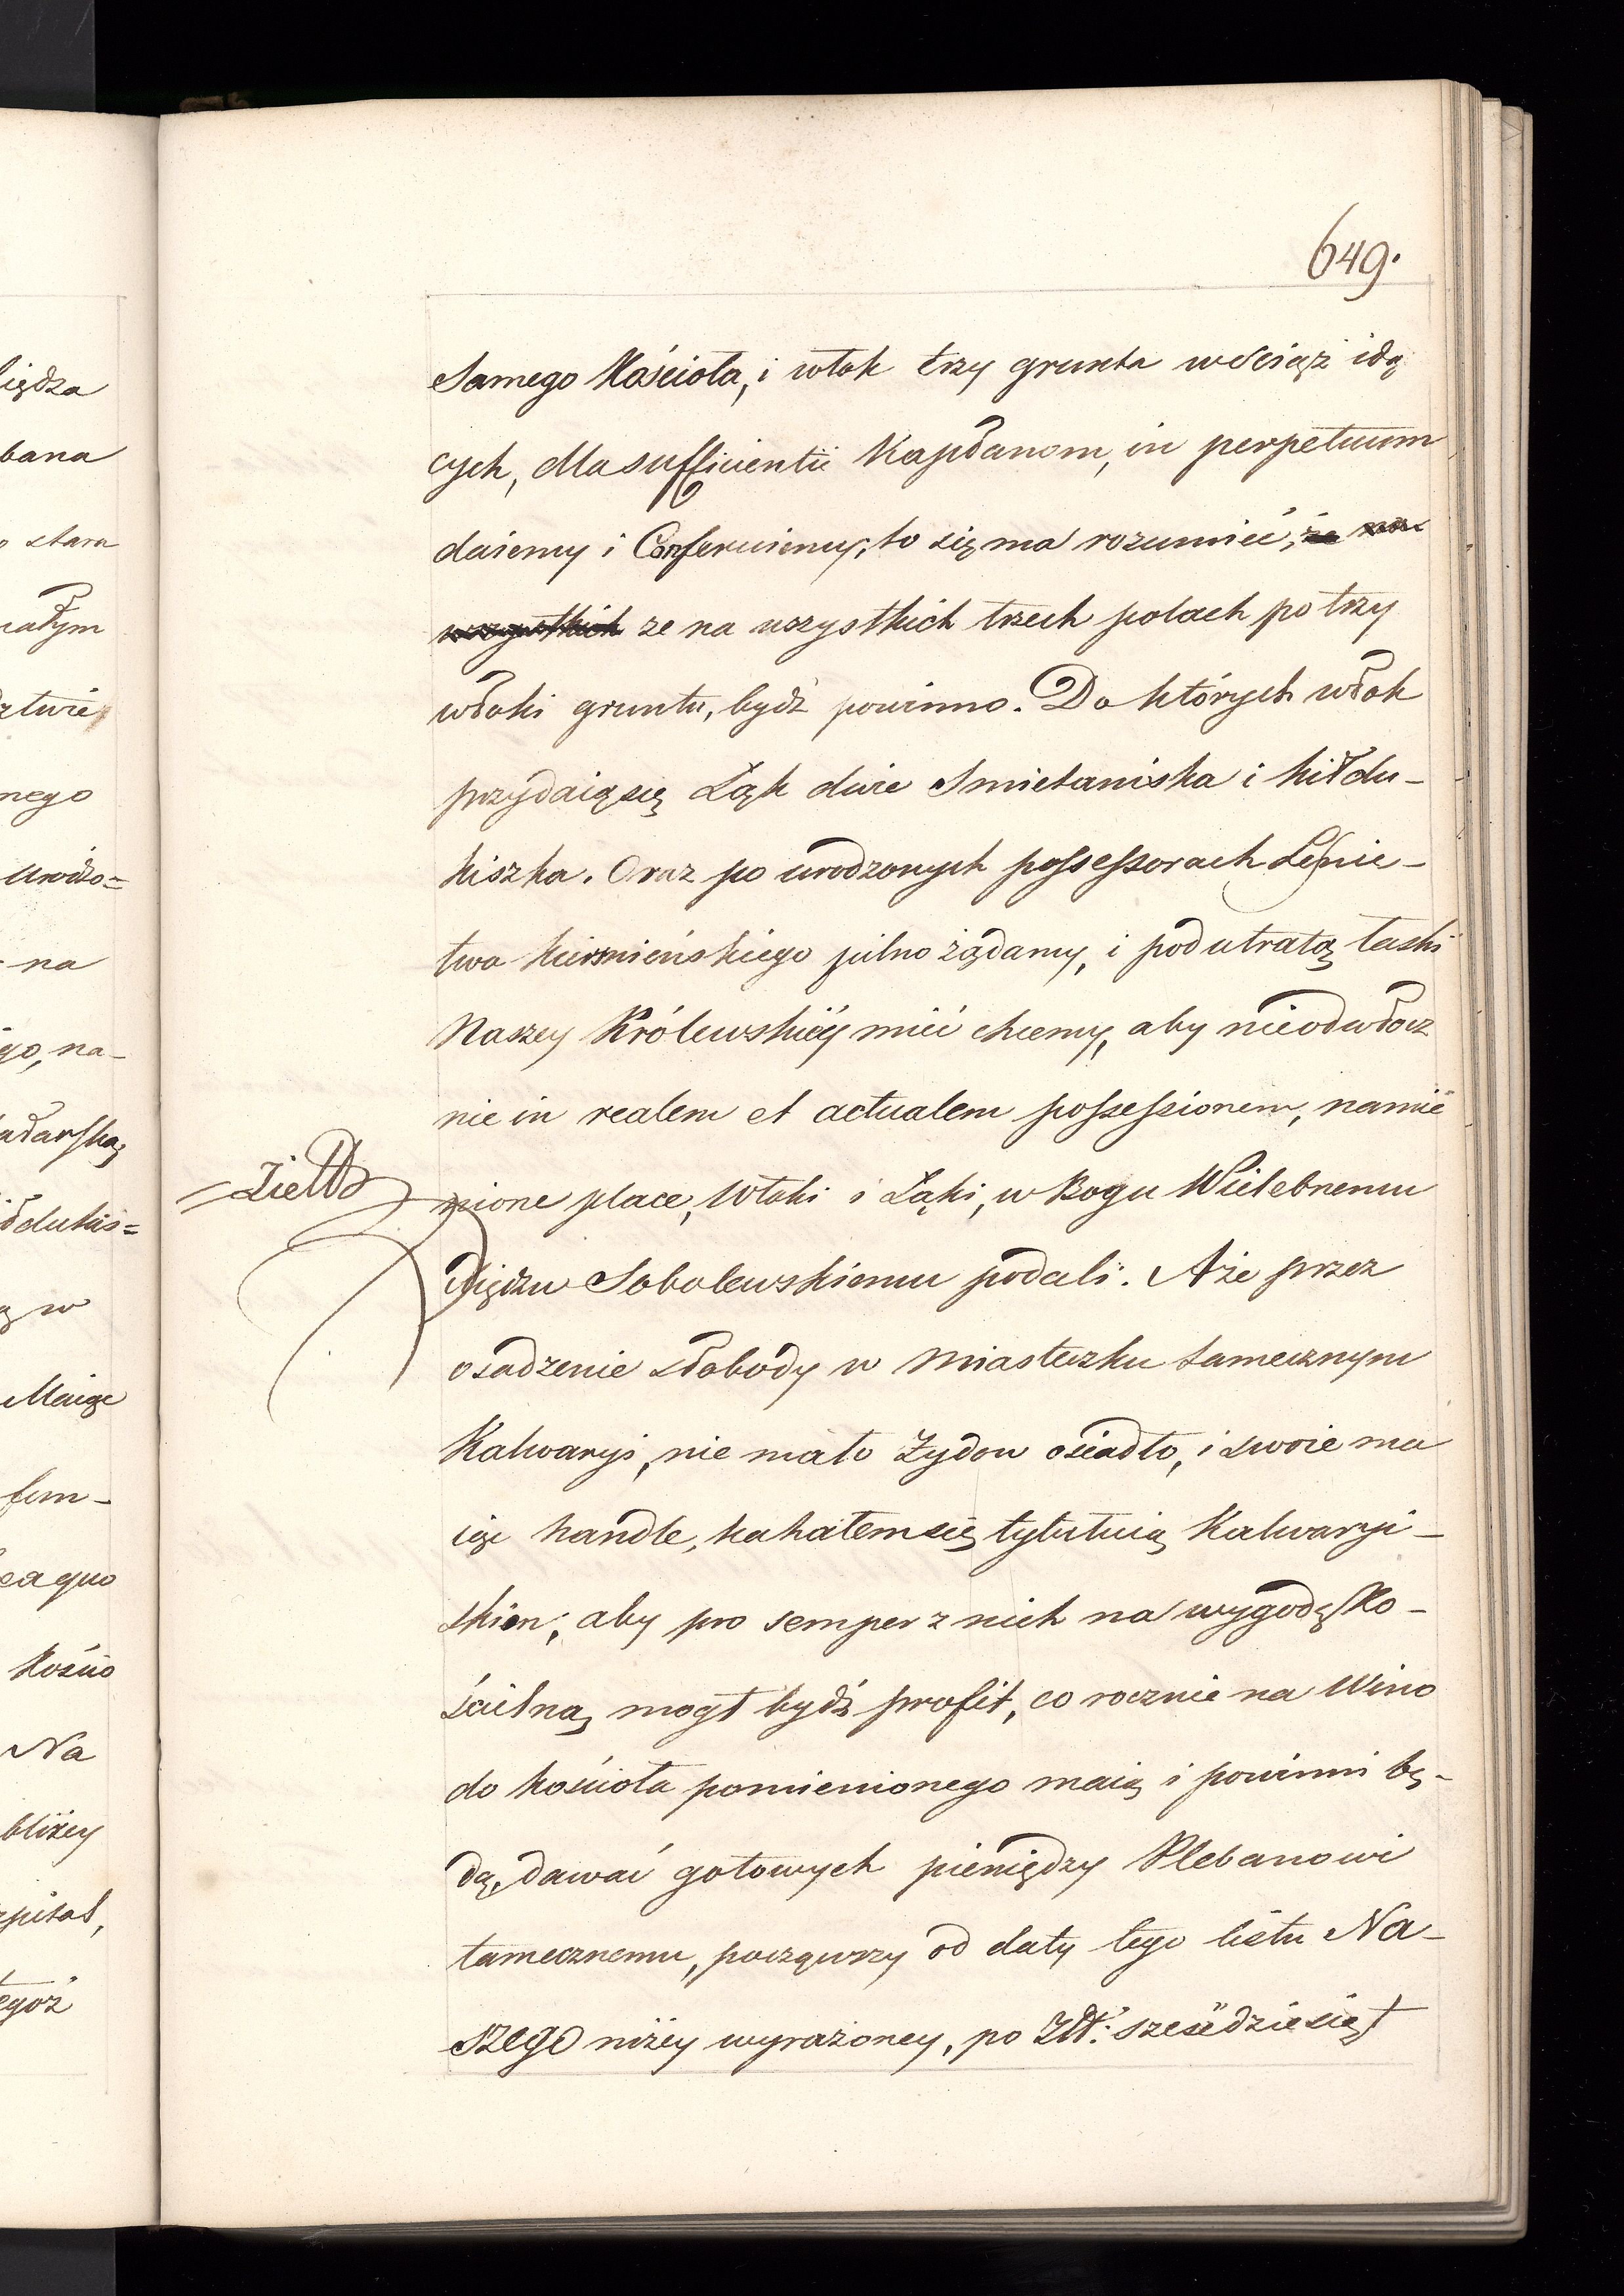 649.
Samego Kościoła, i włok trzy grunta wściąż idą
cych, dla sufficientii Kapłanom, in perpetuum
daiemy i Conferuiemy, to się ma rozumieć, że na
wszystkich ze na wszystkich trzech polach po trzy
włoki gruntu, bydź powinno. Do których włok
przydaią się Łąk dwie Smietaniska i kiłdu-
kiszka. Oraz po urodzonych possessorach Leśnic-
twa kiermieńskiego pilno żądamy, i pod utratą łaski
Naszey Królewskiéy mieć chcemy, aby nieodwłocz
nie in realem et actualem possessionem, namie
nione place, Włoki i Łąki, w Bogu Wielebnemu
Xiędzu Sobolewskiemu podali. A że przez
osadzenie słobody w Miasteczku tamecznym
Kalwaryi, nie mało Żydow osiadło, i swoie ma
iąc handle, kahałem się tytułuią Kalwaryi-
skim; aby pro semper z nich na wygodę Ko-
ścielną mogł bydź profit, co rocznie na Wino
do kościoła pomienionego maią i powinni bę-
dą, dawać gotowych pieniędzy Plebanowi
tamecznemu, począwszy od daty tego listu Na-
szego niżey wyrażoney, po Złł: sześćdziesiąt
iędza
bana
stara
całym
nego
urodzo=
na
go, na-
dukis=
w
Maiąc
fun-
ea quo
kościo
Na
bliżey
egoż